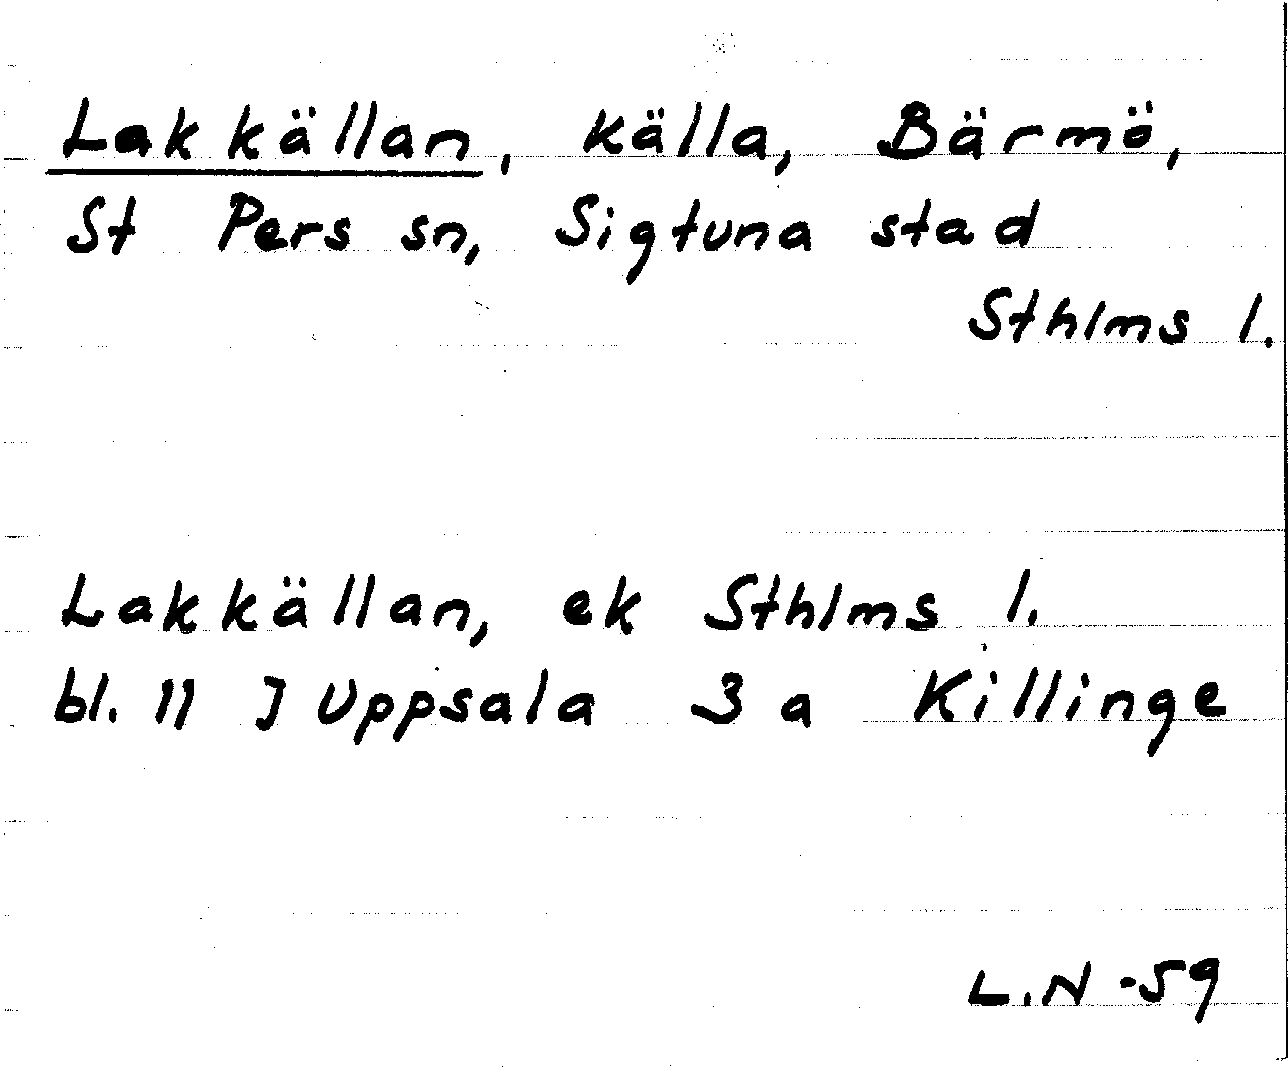 Lakkällan, källa, Bärmö,
St Pers sn, Sigtuna stad
Sthlms l.
Lakkällan, ek Sthlms l.
bl. 11 J Uppsala 3 a Killinge
L.N -59